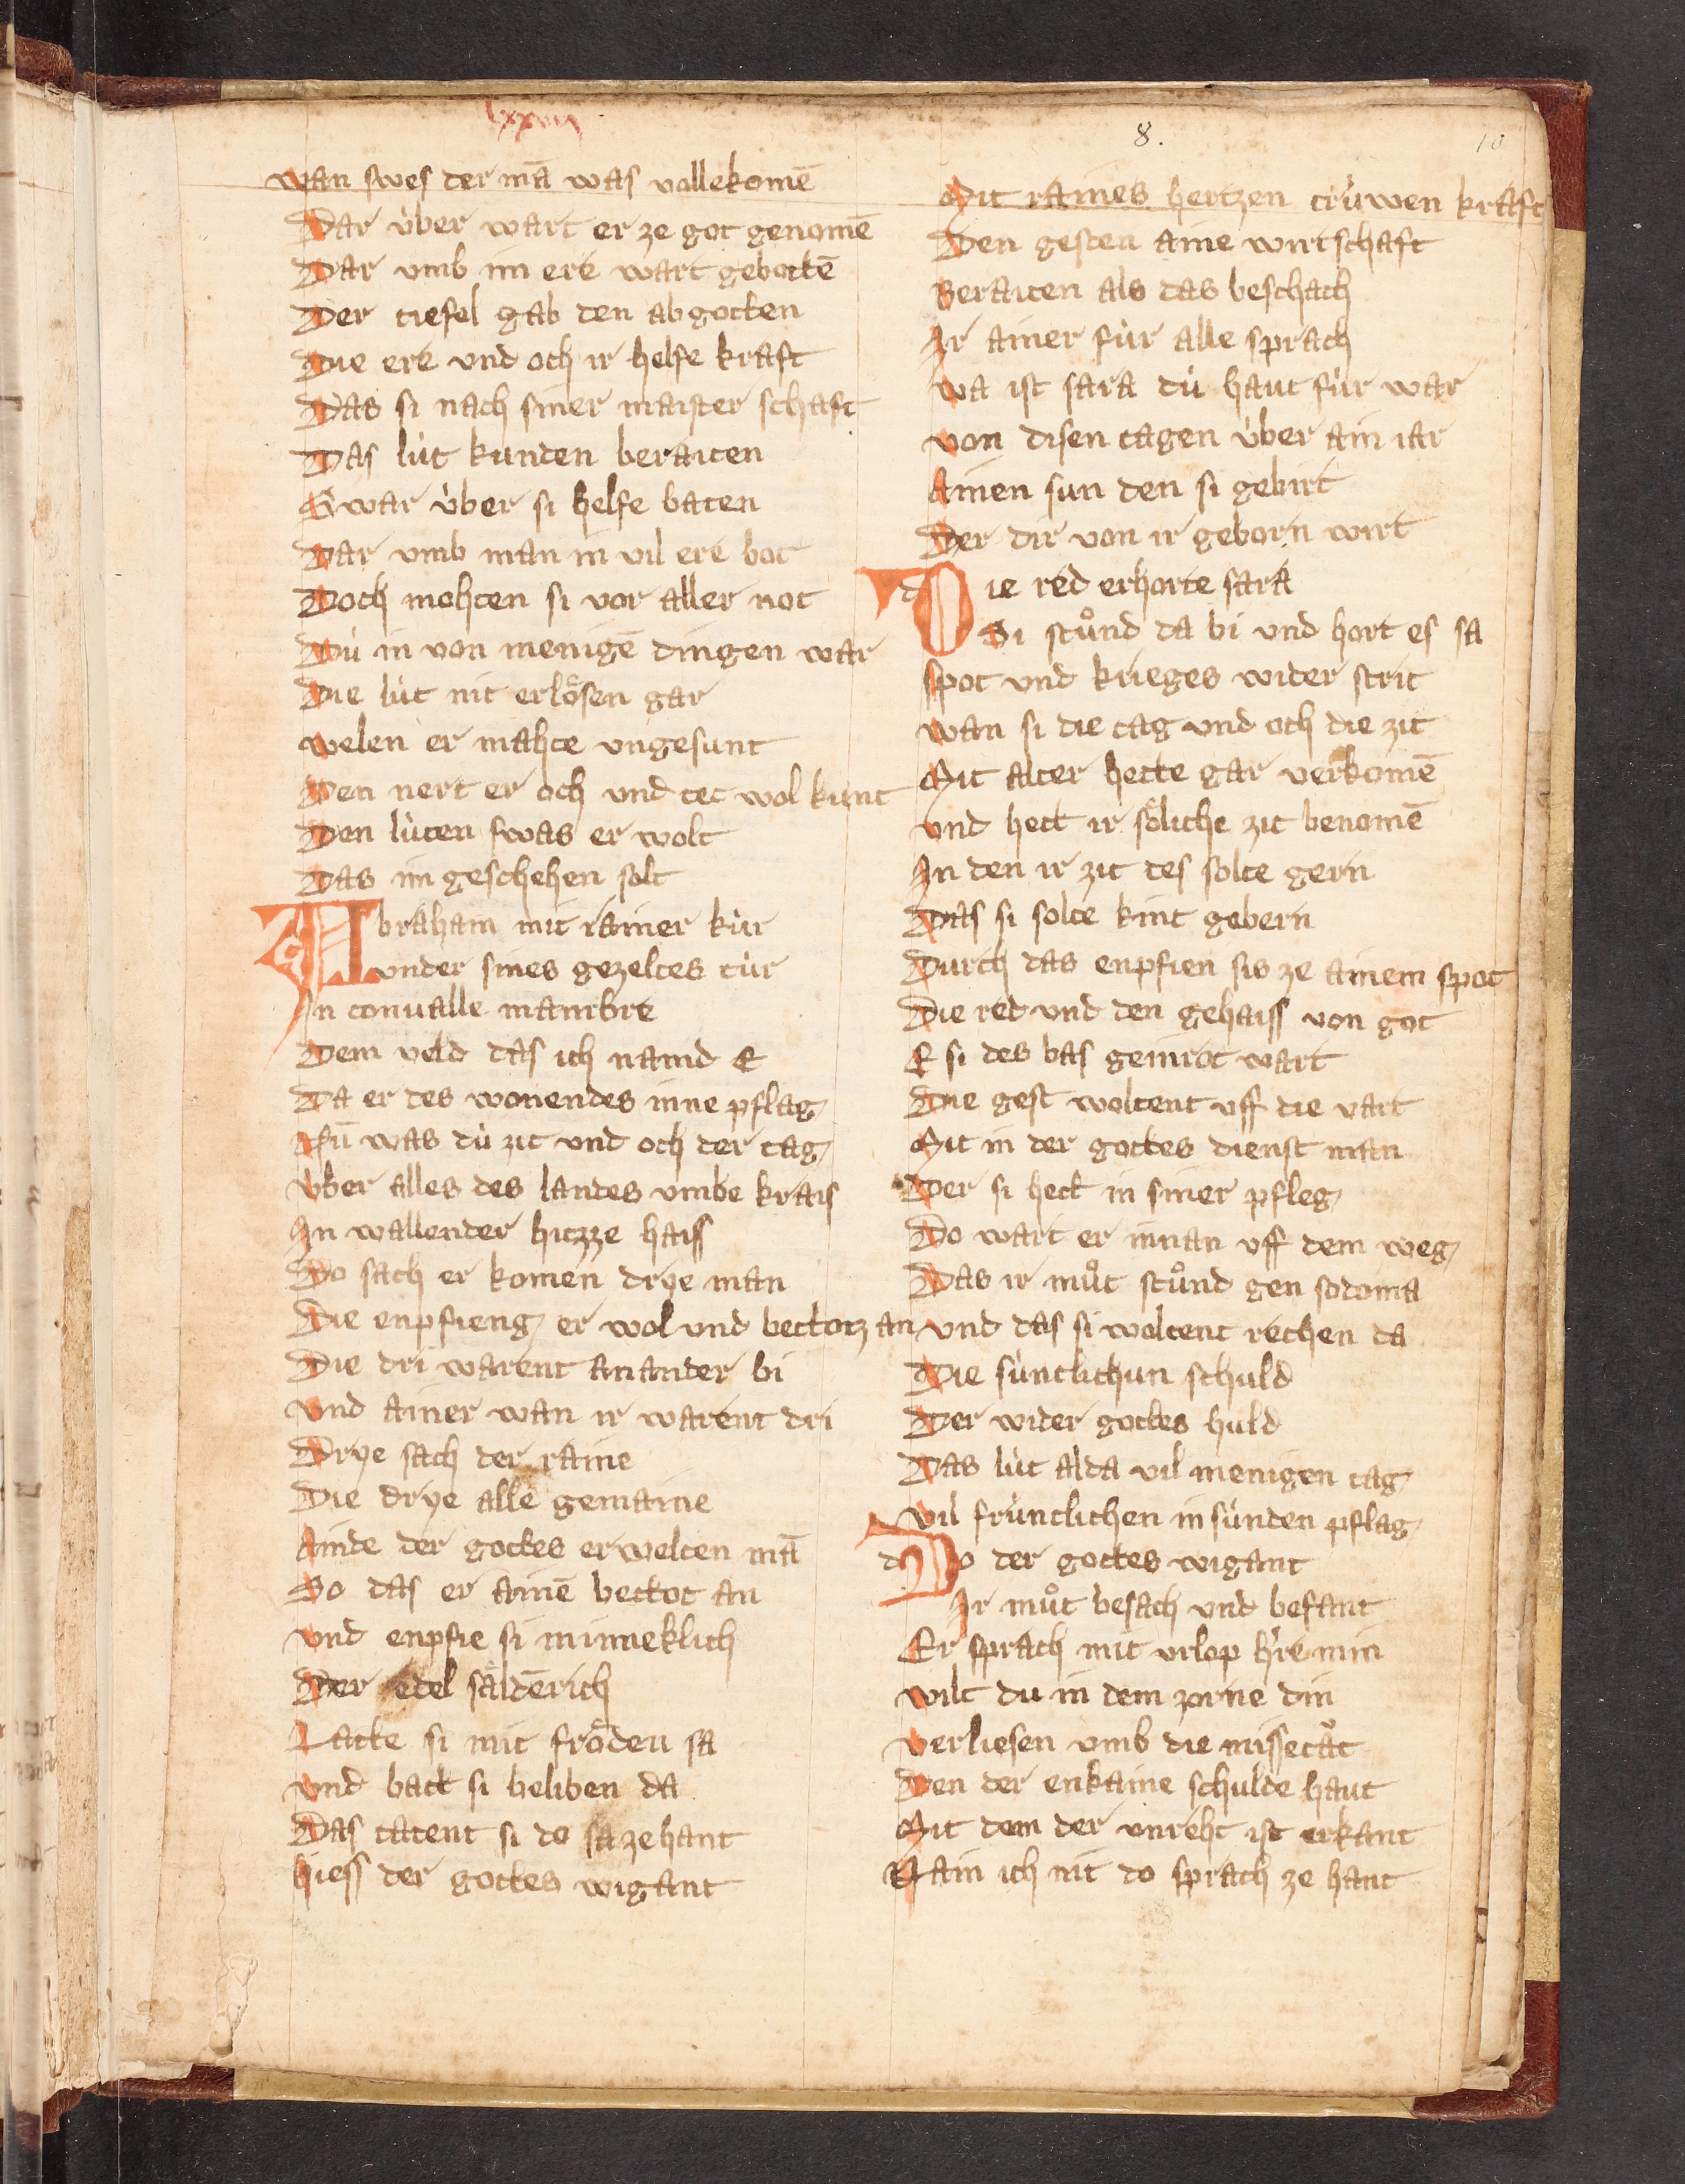 lxxvii
8.
10
wan swes der mā was vollekomē
Dar v̇ber wart er ze got genomē
Dar vmb im ere wart gebottē
Der tiefel gab den abgotten
Die ere vnd och ir helfe kraft
Das si nach siner maister schaft
Das lu̇t kunden beraiten
Swar v̇ber si helfe baten
Dar vmb man in vil ere bot
Doch mohten si vor aller not
Du̇ in von menigē dingen war
Die lu̇t nit erlösen gar
welen er mahte vngesunt
Den nert er och vnd tet wol kunt
Den lu̇ten swas er wolt
Das im geschehen solt
Abraham mit rainer ku̇r
vnder sines gezeltes tu̇r
In convalle mambre
Dem veld das ich namd E
Da er des wonendes inne pflag
Nū was du̇ zit vnd och der tag
v̇ber alles des landes vmbe krais
In wallender hizze haiss
Do sach er komen drye man
Die enpfieng er wol vnd bettotz an
Die dri warent anander bi
vnd ainer wan ir warent dri
Drye sach der raine
Die drye alle gemaine
Ainde der gottes erwelten mā
So das er ainē bettot an
vnd enpfie si minneklich
Der edel säldērich
Latte si mit fröden sa
vnd batt si beliben da
Das tatent si do sa zehant
hiess der gottes wigant
Mit raines hertzen tru̇wen kraft
Den gesten aine wirtschaft
Beraiten als das beschach
Ir ainer fu̇r alle sprach
wa ist sara du̇ haut fu̇r war
von disen tagen v̇ber ain iar
Ainen sun den si gebirt
Der dir von ir geborn wirt
Die red erhorte sara
Si stůnd da bi vnd hort es sa
spot vnd krieges wider strit
wan si die tag vnd och die zit
Mit alter hette gar verkomē
vnd hett ir söliche zit benomē
In den ir zit des solte gern
Das si solte kint gebern
Durch das enpfien sis ze ainem spot
Die red vnd den gehaiss von got
E si des bas geinrot wart
Die gest woltent vff die vart
Mit in der gottes dienst man
Der si hett in siner pfleg
Do wart er innan vff dem weg
Das ir můt stůnd gen sodoma
vnd das si woltent rechen da
Die su̇ntlichun schuld
Der wider gottes huld
Das lu̇t alda vil menigen tag
vil fru̇ntlichen in su̇nden pflag
Do der gottes wigant
Ir můt besach vnd befant
Er sprach mit vrlop h're min
wilt du in dem zorne din
verliesen vmb die missetåt
Den der enkaine schulde haut
Mit dem der vnreht ist erkant
Nain ich nit do sprach ze hant